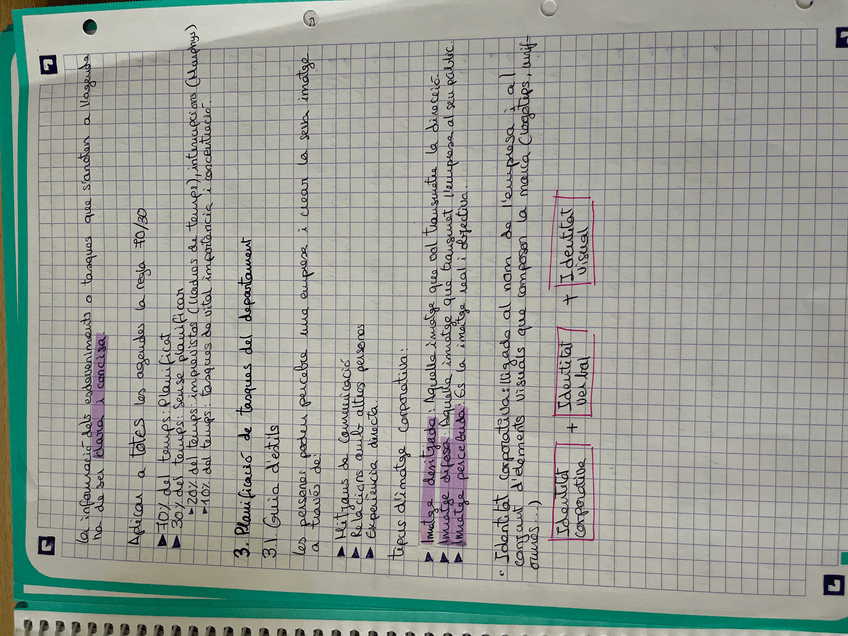 La informació dels esdeveniments o tasques que s'anoten a l'agenda
ha de ser clara i concisa
Aplicar a totes les agendes la regla 70/30
► 70% del temps: Planificat
► 30% del temps: Sense planificar
► 20% del temps: imprevistos (lladres de temps), interrupcions (Murphys)
► 10% del temps: tasques de vital importància i concentració.
3. Planificació de tasques del departament
3.1. Guia d'estils
Les persones poden percebre una empresa i crear la seva imatge
a través de:
► Mitjans de Comunicació
► Relacions amb altres persones
► Experiència directa.
Tipus d'imatge corporativa:
► Imatge desitjada: Aquella imatge que vol transmetre la direcció.
► Imatge difosa: Aquella imatge que transmet l'empresa al seu públic.
► Imatge percebuda: Es la imatge real i objectiva.
" Identitat corporativa: lligada al nom de l'empresa i al
conjunt d'elements visuals que composen la marca (logotips, unif-
ormes...)
Identitat corporativa + Identitat verbal + Identitat visual